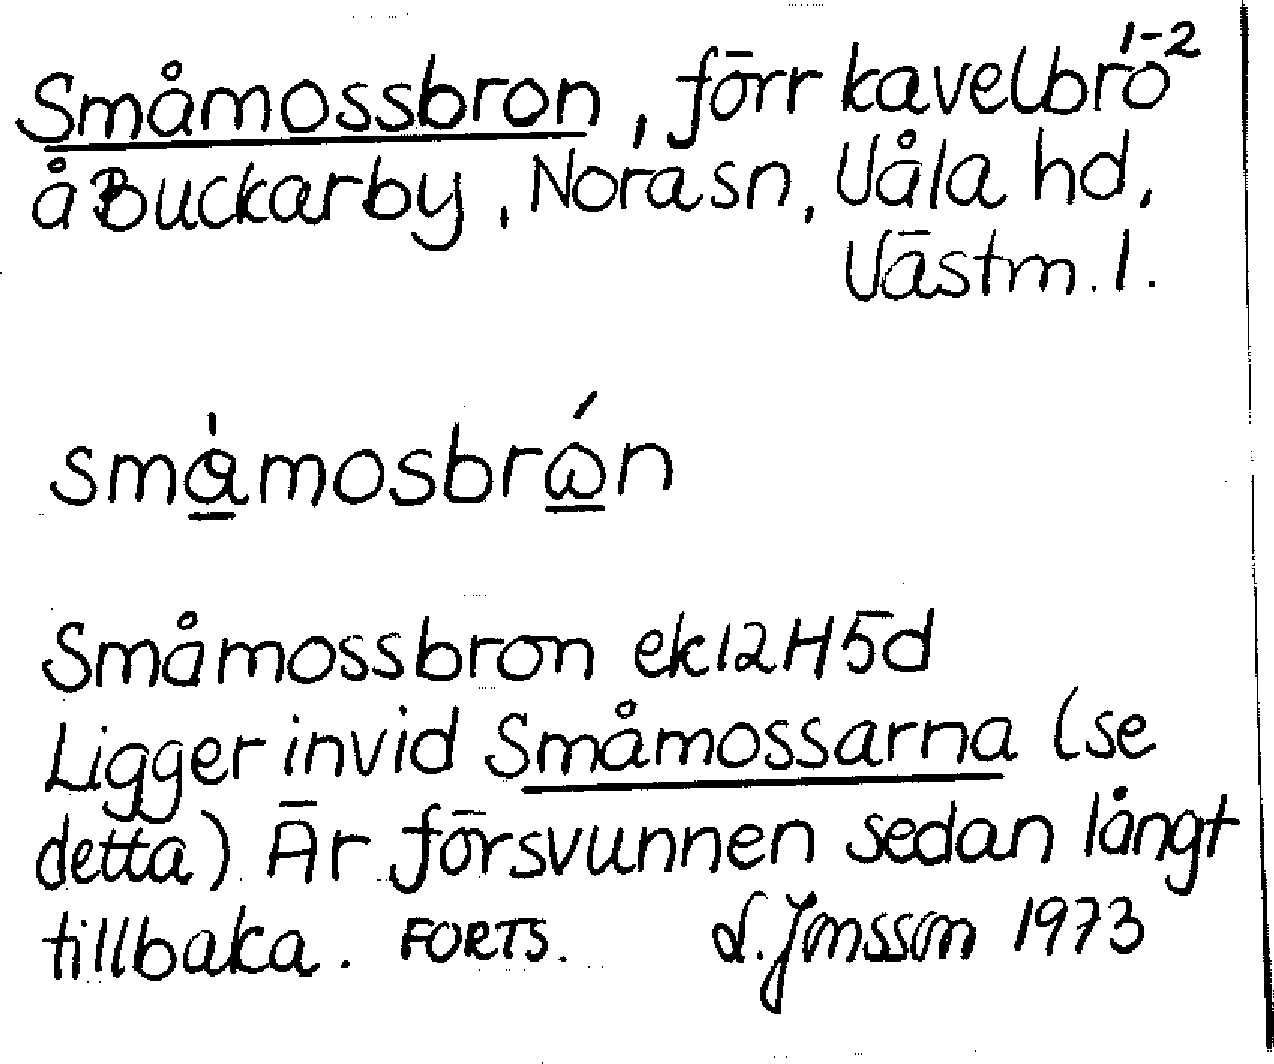 Småmossbron, förr kavelbro 1-2
å Buckarby, Nora sn, Våla hd,
Västm. l.
småmosbrån
Småmossbron ek 12H5d
Ligger invid Småmossarna (se
detta) Är försvunnen sedan långt
tillbaka. FORTS. L. Jonsson 1973